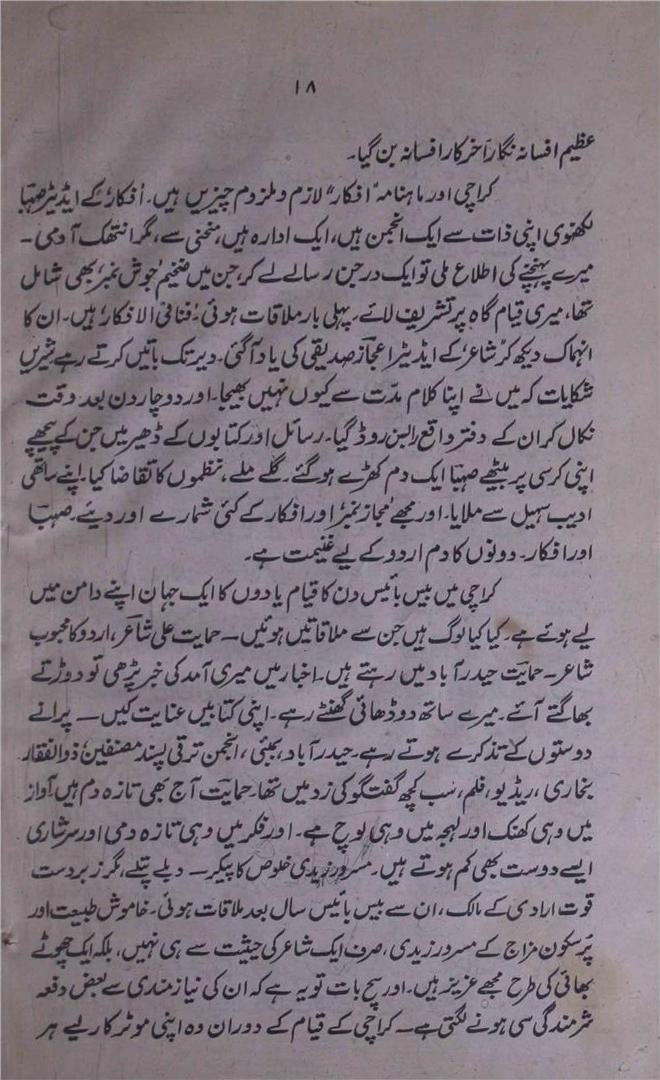 ۱۸
عظیم افسانہ نگار آخر کار افسانہ بن گیا۔
کراچی اور ماہنامہ "افکار" لازم و ملزوم چیزیں ہیں۔ 'افکار' کے ایڈیٹر صہبا
لکھنوی اپنی ذات سے ایک انجمن ہیں، ایک ادارہ ہیں، منحنی سے، مگر انتھک آدمی۔
میرے پہنچنے کی اطلاع ملی تو ایک درجن رسالے لے کر، جن میں ضخیم 'جوش نمبر' بھی شامل
تھا، میری قیام گاہ پر تشریف لائے۔ پہلی بار ملاقات ہوئی۔ 'فنافی الافکار' ہیں۔ ان کا
انہماک دیکھ کر 'شاعر' کے ایڈیٹر اعجاز صدیقی کی یاد آگئی۔ دیر تک باتیں کرتے رہے شیریں
شکایات کہ میں نے اپنا کلام مدّت سے کیوں نہیں بھیجا۔ اور دو چار دن بعد وقت
نکال کر ان کے دفتر واقع رابسن روڈ گیا۔ رسائل اور کتابوں کے ڈھیر میں جن کے پیچھے
اپنی کرسی پر بیٹھے صہبا ایک دم کھڑے ہو گئے۔ گلے ملے، نظموں کا تقاضا کیا۔ اپنے ساتھی
ادیب سہیل سے ملایا۔ اور مجھے 'مجاز نمبر' اور افکار کے کئی شمارے اور دیئے۔ صہبا
اور افکار۔ دونوں کا دم اردو کے لیے غنیمت ہے۔
کراچی میں بیس بائیس دن کا قیام یادوں کا ایک جہان اپنے دامن میں
لیے ہوئے ہے۔ کیا کیا لوگ ہیں جن سے ملاقاتیں ہوئیں۔ حمایت علی شاعر، اردو کا محبوب
شاعر۔ حمایت حیدر آباد میں رہتے ہیں۔ اخبار میں میری آمد کی خبر پڑھی تو دوڑتے
بھاگتے آئے۔ میرے ساتھ دو ڈھائی گھنٹے رہے۔ اپنی کتابیں عنایت کیں۔ پرانے
دوستوں کے تذکرے ہوتے رہے۔ حیدر آباد، بمبئی، انجمن ترقی پسند مصنفین، ذوالفقار
بخاری، ریڈیو، فلم، سب کچھ گفتگو کی زد میں تھا۔ حمایت آج بھی تازہ دم ہیں آواز
میں وہی کھنک اور لہجہ میں وہی لوچ ہے۔ اور فکر میں وہی تازہ دمی اور سرشاری
ایسے دوست بھی کم ہوتے ہیں۔ مسرور زیدی خلوص کا پیکر۔ دبلے پتلے، مگر زبردست
قوت ارادی کے مالک، ان سے بیس بائیس سال بعد ملاقات ہوئی۔ خاموش طبیعت اور
پُرسکون مزاج کے مسرور زیدی، صرف ایک شاعر کی حیثیت سے ہی نہیں، بلکہ ایک چھوٹے
بھائی کی طرح مجھے عزیز ہیں۔ اور سچ بات تو یہ ہے کہ ان کی نیاز مندی سے بعض دفعہ
شرمندگی سی ہونے لگتی ہے۔ کراچی کے قیام کے دوران وہ اپنی موٹر کار لیے ہر